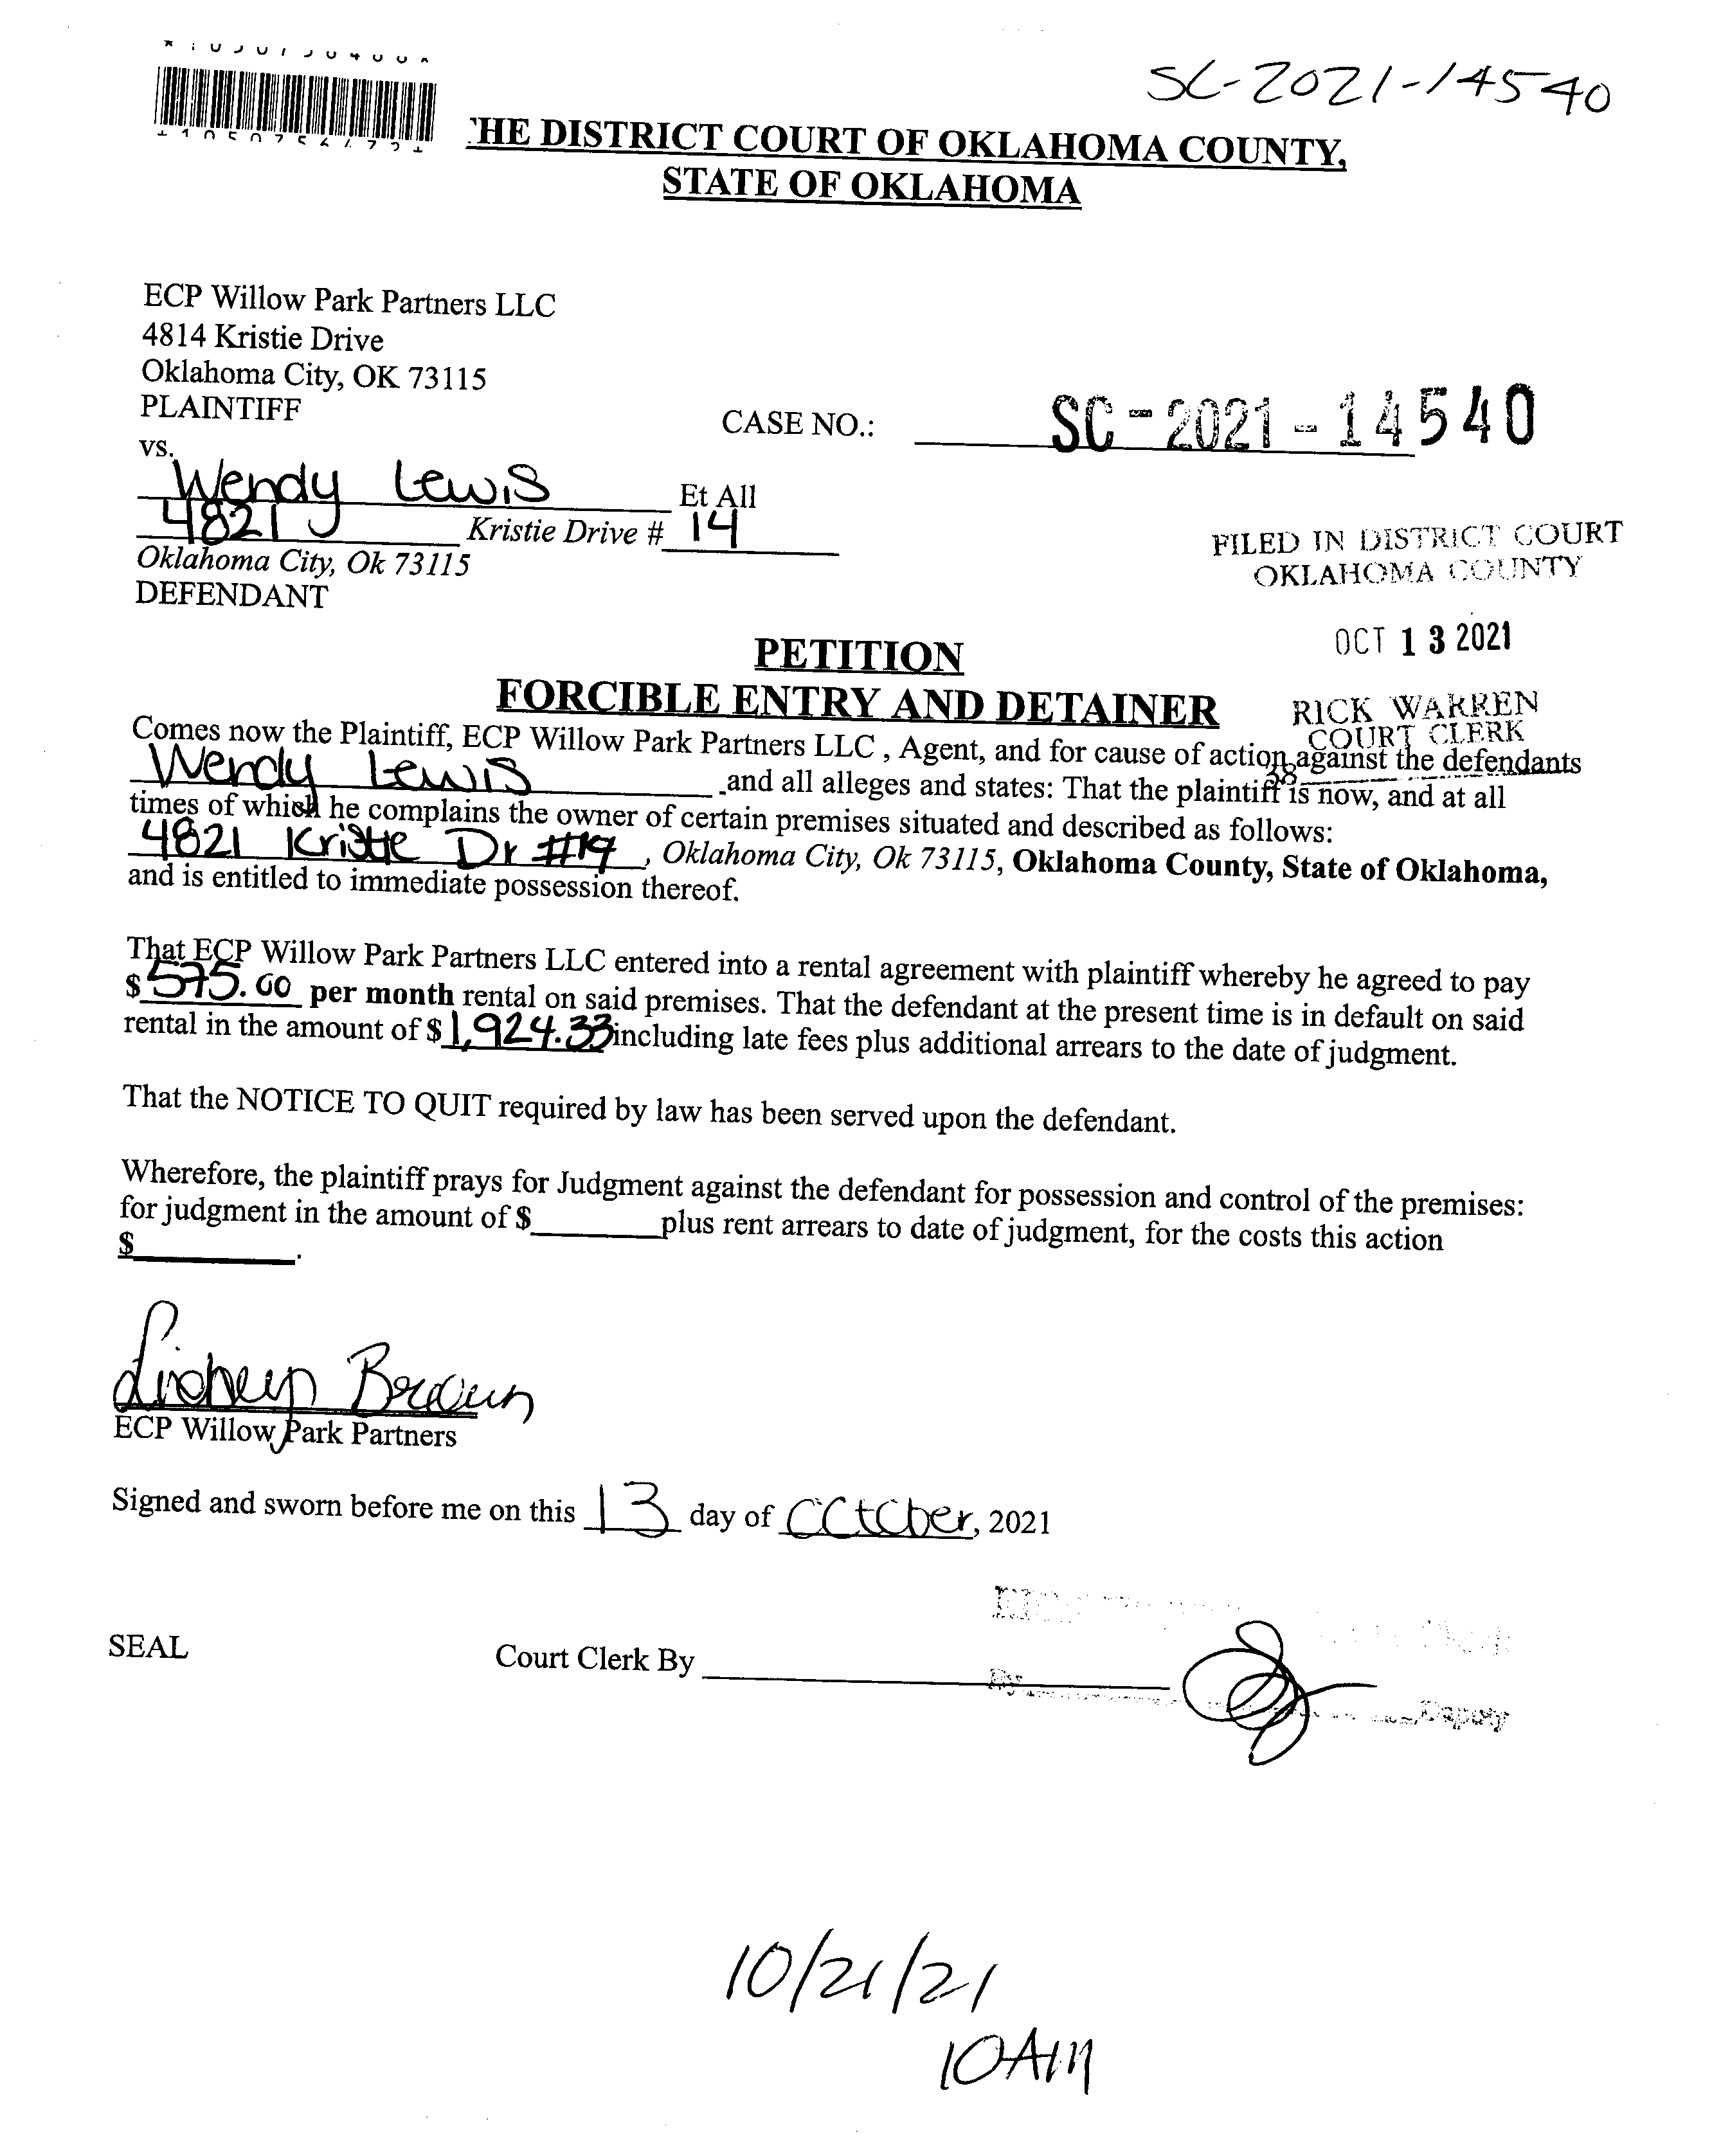 SC-2021-14540
HE DISTRICT COURT OF OKLAHOMA COUNTY,
STATE OF OKLAHOMA
ECP Willow Park Partners LLC
4814 Kristie Drive
Oklahoma City, OK 73115
PLAINTIFF
CASE NO.: SC-2021-14540
vs.
Wendy Lewis Et All
4821 Kristie Drive # 14
Oklahoma City, Ok 73115
DEFENDANT
FILED IN DISTRICT COURT
OKLAHOMA COUNTY
OCT 13 2021
RICK WARREN
COURT CLERK
38
PETITION
FORCIBLE ENTRY AND DETAINER
Comes now the Plaintiff, ECP Willow Park Partners LLC , Agent, and for cause of action against the defendants
Wendy Lewis and all alleges and states: That the plaintiff is now, and at all
times of which he complains the owner of certain premises situated and described as follows:
4821 Kristie Dr #14, Oklahoma City, Ok 73115, Oklahoma County, State of Oklahoma,
and is entitled to immediate possession thereof.
That ECP Willow Park Partners LLC entered into a rental agreement with plaintiff whereby he agreed to pay
$575.00 per month rental on said premises. That the defendant at the present time is in default on said
rental in the amount of $1,924.33 including late fees plus additional arrears to the date of judgment.
That the NOTICE TO QUIT required by law has been served upon the defendant.
Wherefore, the plaintiff prays for Judgment against the defendant for possession and control of the premises:
for judgment in the amount of $_______plus rent arrears to date of judgment, for the costs this action
$_________.
Brown
ECP Willow Park Partners
Signed and sworn before me on this 13 day of October, 2021
SEAL Court Clerk By
By Deputy
10/21/21
10AM